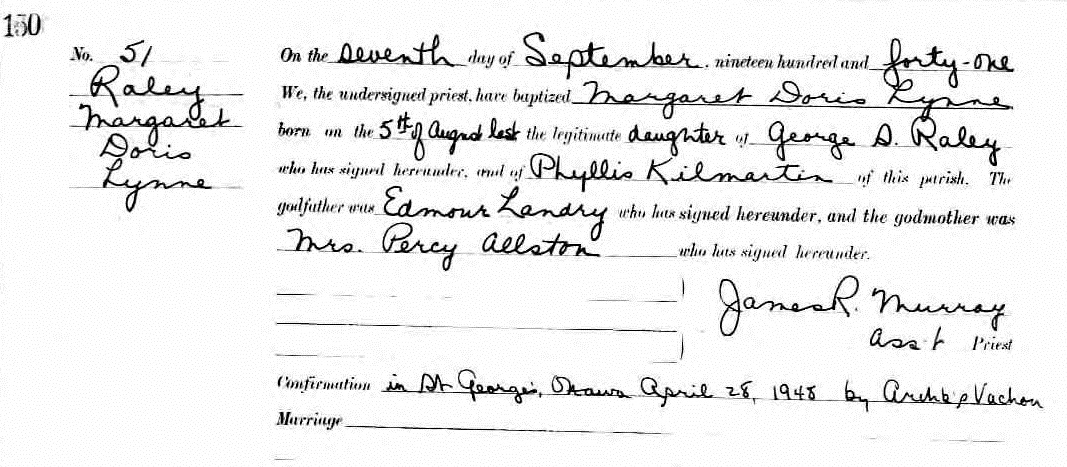 150
No. 51
Raley
Margaret
Doris
Lynne
On the seventh day of September, nineteen hundred and forty-one
We, the undersigned priest, have baptized Margaret Doris Lynne
born on the 5th of August last the legitimate daughter of George D. Raley
who has signed hereunder, and of Phyllis Kilmartin of this parish. The
godfather was Edmour Landry who has signed hereunder, and the godmother was
Mrs. Percy Allston who has signed hereunder.
James R. Murray
Ass't Priest
Confirmation in St George's, Ottawa April 28, 1948 by Archb'p Vachon
Marriage